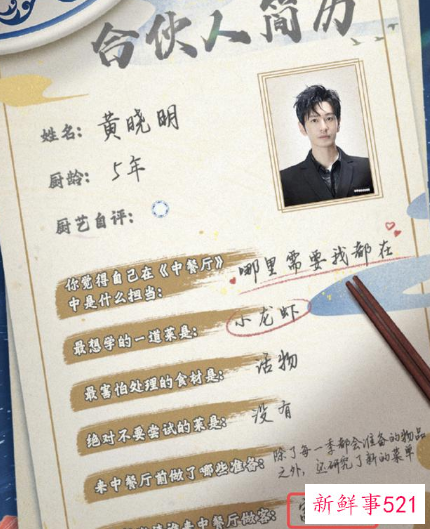 合伙人简历
姓名: 黄晓明
厨龄: 5年
厨艺自评:
你觉得自己在《中餐厅》
中是什么担当:
哪里需要我都在
最想学的一道菜是:
小龙虾
最害怕处理的食材是:
活物
绝对不要尝试的菜是:
没有
来中餐厅前做了哪些准备:
除了每一季都会准备的物品
之外, 还研究了新的菜单
新鲜事521